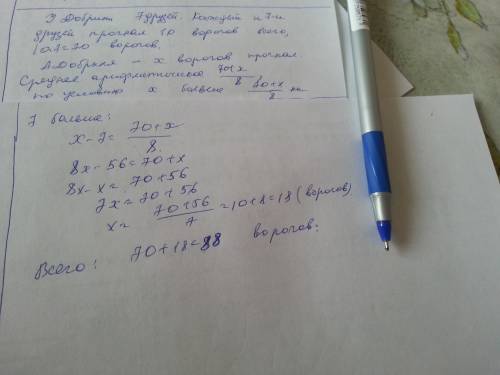 З Добрыни 7 друзей. Каждый из 7-и
друзей прогнал 10 ворогов всего,
10·7=70 ворогов.
А Добрыня – x ворогов прогнал.
Среднее арифметическое 70+x / 8
по условию x больше 70+x / 8 на
7 больше:
x-7= 70+x / 8.
8x-56=70+x
8x-x=70+56
7x=70+56
x= 70+56 / 7 =10+8=18 (ворогов)
Всего: 70+18=88 ворогов.